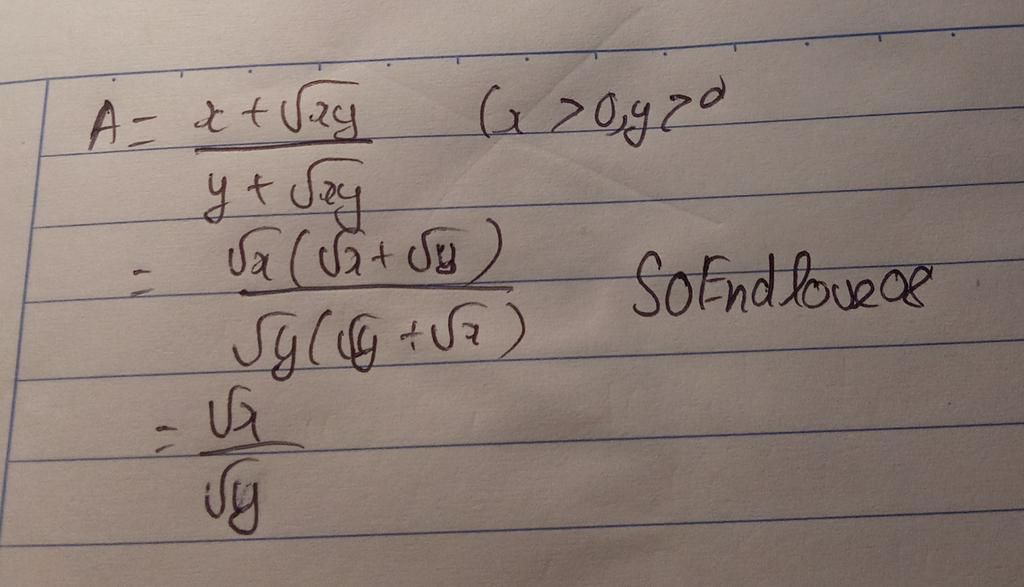 A = x + √xy / y + √xy (x > 0, y > 0
= √x (√x + √y) / √y (√y + √x)
SoEndloveoe
= √x / √y